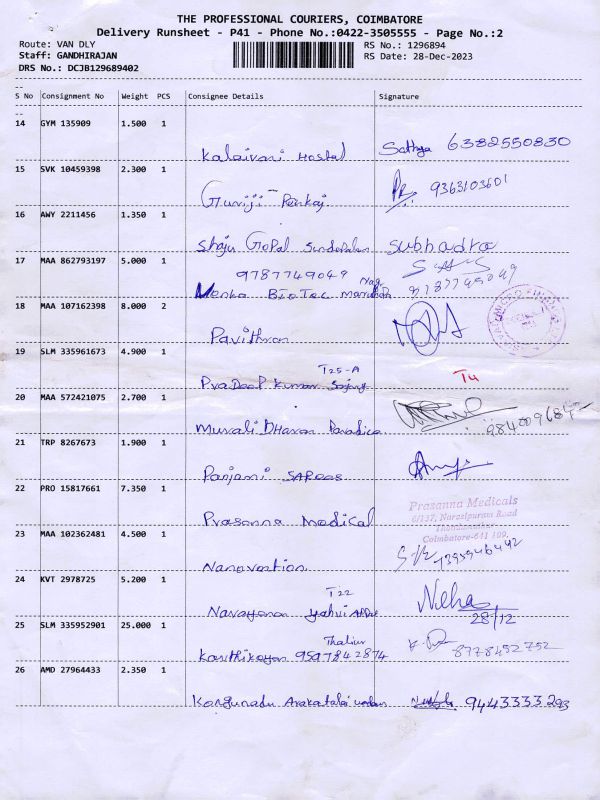 THE PROFESSIONAL COURIERS, COIMBATORE
Delivery Runsheet - P41 - Phone No.:0422-3505555 - Page No.:2
Route: VAN DLY
RS No.: 1296894
Staff: GANDHIRAJAN
RS Date: 28-Dec-2023
DRS No.: DCJB129689402
S No Consignment No Weight PCS Consignee Details Signature
14 GYM 135909 1.500 1
Kalaivani Hostal Sathya 6382550830
15 SVK 10459398 2.300 1
Guruji Pankaj 9363103601
16 AWY 2211456 1.350 1
Shaju Gopal Subhadra
17 MAA 862793197 5.000 1
9787749049
Menka BioTec
18 MAA 107162398 8.000 2
Pavithran
19 SLM 335961673 4.900 1
T25-A
PraDeep Kumar T4
20 MAA 572421075 2.700 1
Murali Dharan
21 TRP 8267673 1.900 1
Panjami SAREES
22 PRO 15817661 7.350 1
Prasanna Medical
Prasanna Medicals
6/137, Narasipuram Road
Thondamuthur
Coimbatore-641 109.
23 MAA 102362481 4.500 1
Nanovation 7395946442
24 KVT 2978725 5.200 1
T22
Narayanan Neha
28/12
25 SLM 335952901 25.000 1
Karthikeyan 9597842874 8778452752
26 AMD 27964433 2.350 1
Kongunadu 9443333293